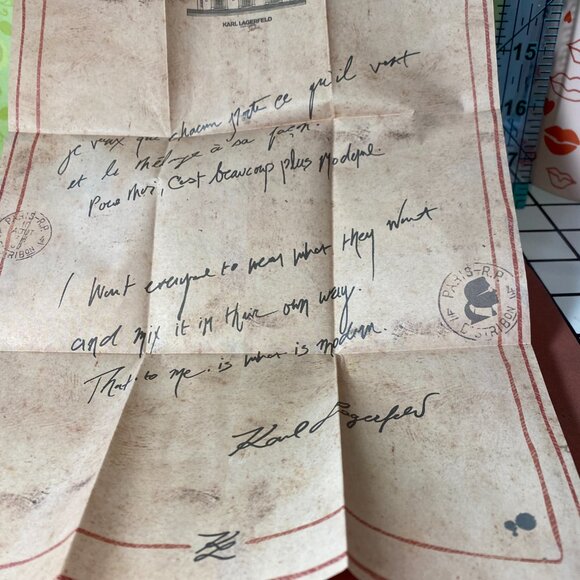 KARL LAGERFELD
Je veux que chacun porte ce qu'il veut
et le mélange à sa façon.
Pour moi, c'est beaucoup plus moderne.
I want everyone to wear what they want
and mix it in their own way.
That to me is what is modern.
Karl Lagerfeld
PARIS-R.P.
PARIS-R.P.
KL
15
16